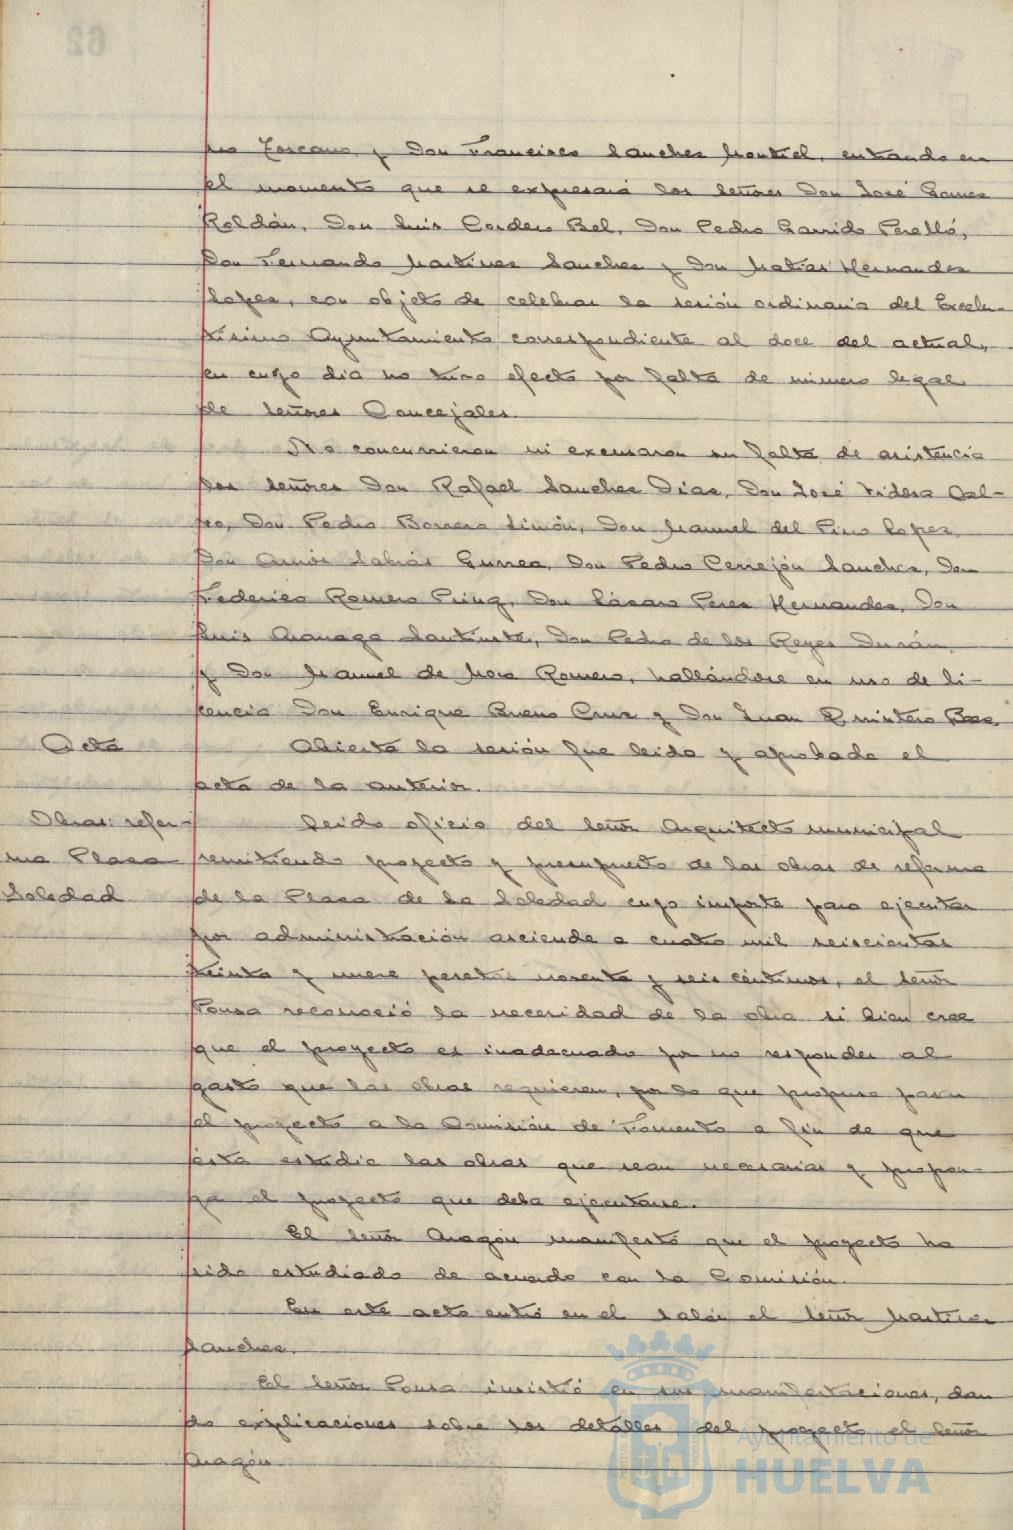 ro Toscano, y Don Francisco Sanchez Montiel, entrando en
el momento que se expresará los señores Don José Gomez
Roldán, Don Luis Cordero Bel, Don Pedro Garrido Perelló,
Don Fernando Martinez Sanchez y Don Matias Hernandez
Lopez, con objeto de celebrar la sesión ordinaria del Excelen-
tísimo Ayuntamiento correspondiente al doce del actual,
en cuyo dia no tuvo efecto por falta de número legal
de señores Concejales.
No concurrieron ni excusaron su falta de asistencia
los señores Don Rafael Sanchez Diaz, Don José Tidera
Don Pedro Borrero Limón, Don Manuel del Pino Lopez,
Don Amós Sabrás Gurrea, Don Pedro Cerrejón Sanchez, Don
Federico Romero Don Lázaro Perez Hernandez, Don
Luis Don Pedro de los Reyes Durán,
y Don Manuel de Mora Romero, hallándose en uso de li-
cencia Don Enrique Bueno Cruz y Don Juan Quintero Baez
Acta
Abierta la sesión fue leida y aprobada el
acta de la anterior.
Obras: refor-
ma Plaza
Soledad
Leido oficio del Señor Arquitecto municipal
remitiendo proyecto y presupuesto de las obras de reforma
de la Plaza de la Soledad cuyo importe para ejecutar
por administración asciende a cuatro mil seiscientas
treinta y nueve pesetas noventa y seis céntimos, el señor
Ponsa reconoció la necesidad de la obra si bien cree
que el proyecto es inadecuado por no responder al
gasto que las obras requieren, por lo que propuso pasar
el proyecto a la Comisión de Fomento a fin de que
ésta estudie las obras que sean necesarias y propon-
ga el proyecto que deba ejecutarse.
El señor Aragón manifestó que el proyecto ha
sido estudiado de acuerdo con la Comisión.
En este acto entró en el salón el señor Martinez
Sanchez.
El Señor Ponsa insistió en sus manifestaciones, dan
do explicaciones sobre los detalles del proyecto el señor
Aragón.
Ayuntamiento de
HUELVA